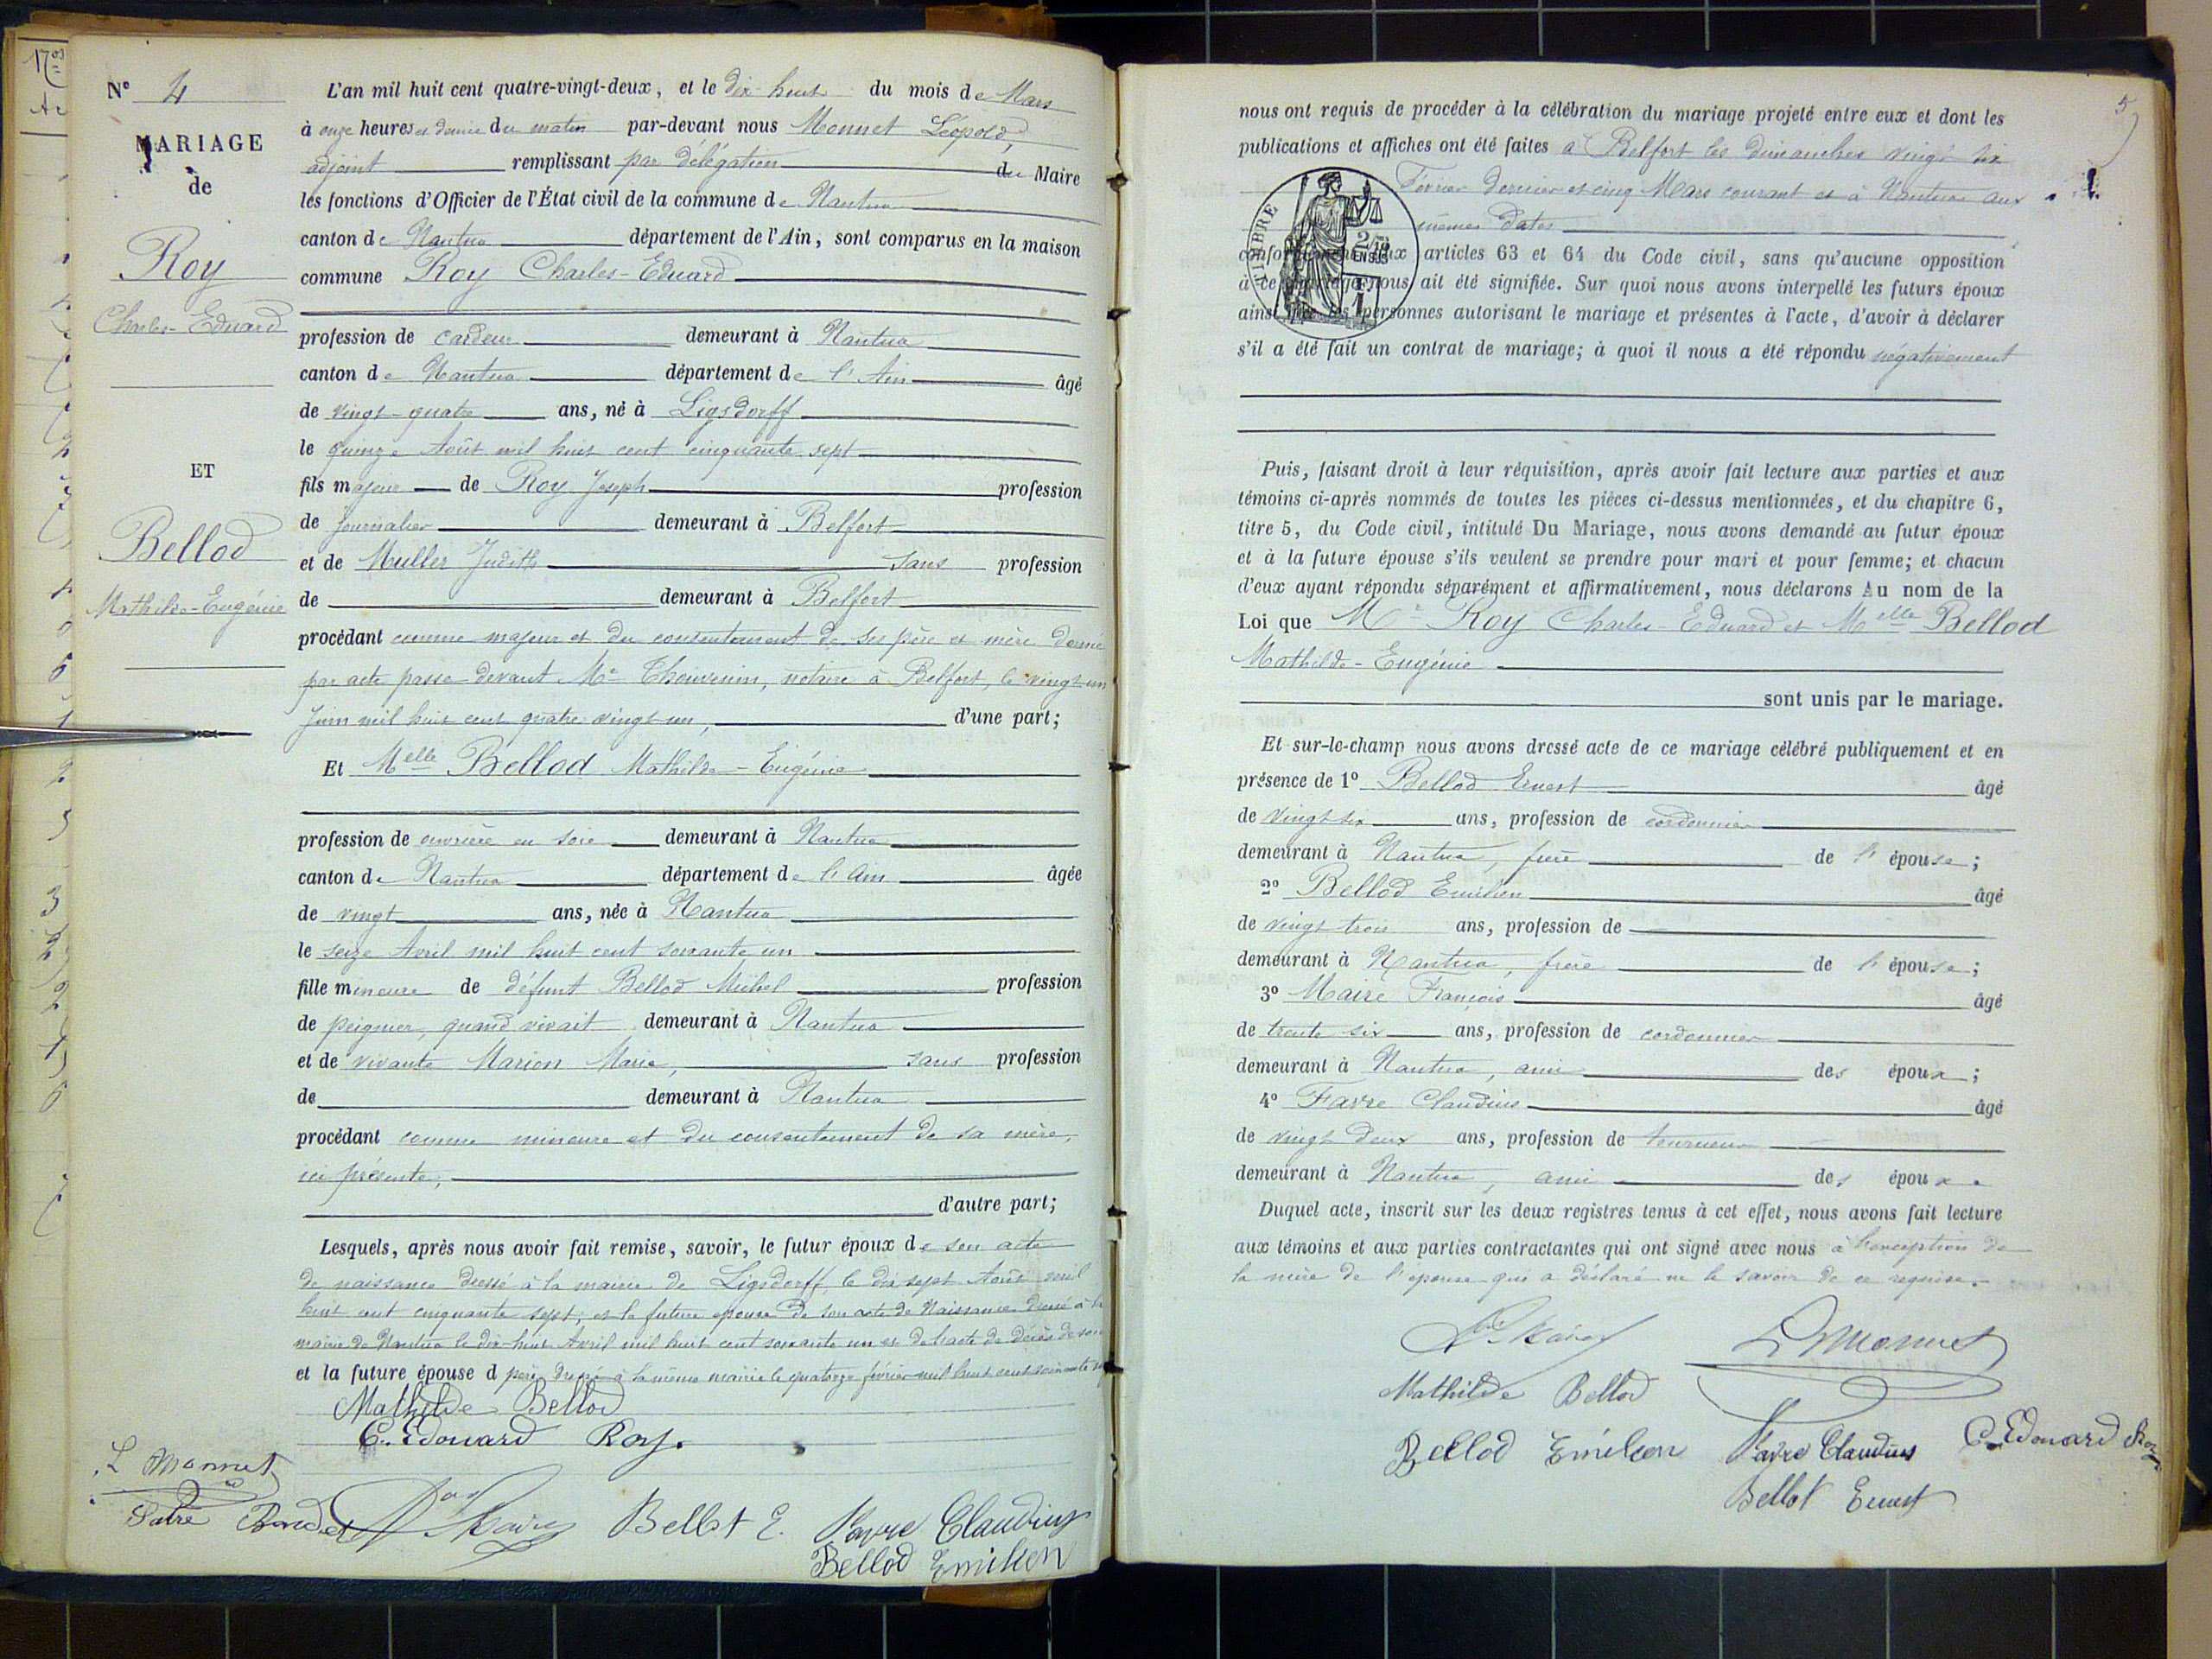 N° 4
MARIAGE
de
Roy
Charles-Eduard
ET
Bellod
Mathilde-Eugénie
L'an mil huit cent quatre-vingt-deux, et le dix huit du mois de Mars
à onze heures et demie du matin par-devant nous Monnet Léopold,
adjoint remplissant par délégation du Maire
les fonctions d'Officier de l'État civil de la commune de Nantua
canton de Nantua département de l'Ain, sont comparus en la maison
commune Roy Charles-Eduard
profession de cardeur demeurant à Nantua
canton de Nantua département de l'Ain âgé
de vingt-quatre ans, né à Ligsdorff
le quinze Août mil huit cent cinquante sept
fils majeur de Roy Joseph profession
de journalier demeurant à Belfort
et de Muller Judith sans profession
de demeurant à Belfort
procédant comme majeur et du consentement de ses père et mère donné
par acte passé devant Me Thouvenin, notaire à Belfort, le vingt un
Juin mil huit cent quatre vingt un, d'une part;
Et Melle Bellod Mathilde-Eugénie
profession de ouvrière en soie demeurant à Nantua
canton de Nantua département de l'Ain âgée
de vingt ans, née à Nantua
le seize Avril mil huit cent soixante un
fille mineure de défunt Bellod Michel profession
de peigneur, quand vivait demeurant à Nantua
et de vivante Marion Marie, sans profession
de demeurant à Nantua
procédant comme mineure et du consentement de sa mère,
ici présente; 
d'autre part;
Lesquels, après nous avoir fait remise, savoir, le futur époux de son acte
de naissance dressé à la mairie de Ligsdorff le dix sept Août mil
huit cent cinquante sept; et la future épouse de son acte de Naissance dressé à la
mairie de Nantua le dix huit Avril mil huit cent soixante un et de l'acte de décès de son
et la future épouse d père, dressé à la même mairie le quatorze février mil huit cent soixante
Mathilde Bellod
C. Edouard Roy.
L Monnet
Bellot E. Favre Claudius
Bellod Emilien
5
nous ont requis de procéder à la célébration du mariage projeté entre eux et dont les
publications et affiches ont été faites à Belfort les dimanches vingt six
Février dernier et cinq Mars courant et à Nantua aux
mêmes dates
TIMBRE
conformément aux articles 63 et 64 du Code civil, sans qu'aucune opposition
à ce mariage nous ait été signifiée. Sur quoi nous avons interpellé les futurs époux
ainsi que les personnes autorisant le mariage et présentes à l'acte, d'avoir à déclarer
s'il a été fait un contrat de mariage; à quoi il nous a été répondu négativement
Puis, faisant droit à leur réquisition, après avoir fait lecture aux parties et aux
témoins ci-après nommés de toutes les pièces ci-dessus mentionnées, et du chapitre 6,
titre 5, du Code civil, intitulé Du Mariage, nous avons demandé au futur époux
et à la future épouse s'ils veulent se prendre pour mari et pour femme; et chacun
d'eux ayant répondu séparément et affirmativement, nous déclarons Au nom de la
Loi que Mr Roy Charles-Eduard et Melle Bellod
Mathilde-Eugénie
sont unis par le mariage.
Et sur-le-champ nous avons dressé acte de ce mariage célébré publiquement et en
présence de 1° Bellod Ernest âgé
de vingt six ans, profession de cordonnier
demeurant à Nantua, frère de l'épouse;
2° Bellod Emilien âgé
de vingt trois ans, profession de
demeurant à Nantua, frère de l'épouse;
3° Maire François âgé
de trente six ans, profession de cordonnier
demeurant à Nantua, ami des époux;
4° Favre Claudius âgé
de vingt deux ans, profession de tourneur
demeurant à Nantua, ami des époux.
Duquel acte, inscrit sur les deux registres tenus à cet effet, nous avons fait lecture
aux témoins et aux parties contractantes qui ont signé avec nous à l'exception de
la mère de l'épouse qui a déclaré ne le savoir de ce requise.
L Monnet
Mathilde Bellod
Bellod Emilien Favre Claudius C. Edouard Roy
Bellot Ernest